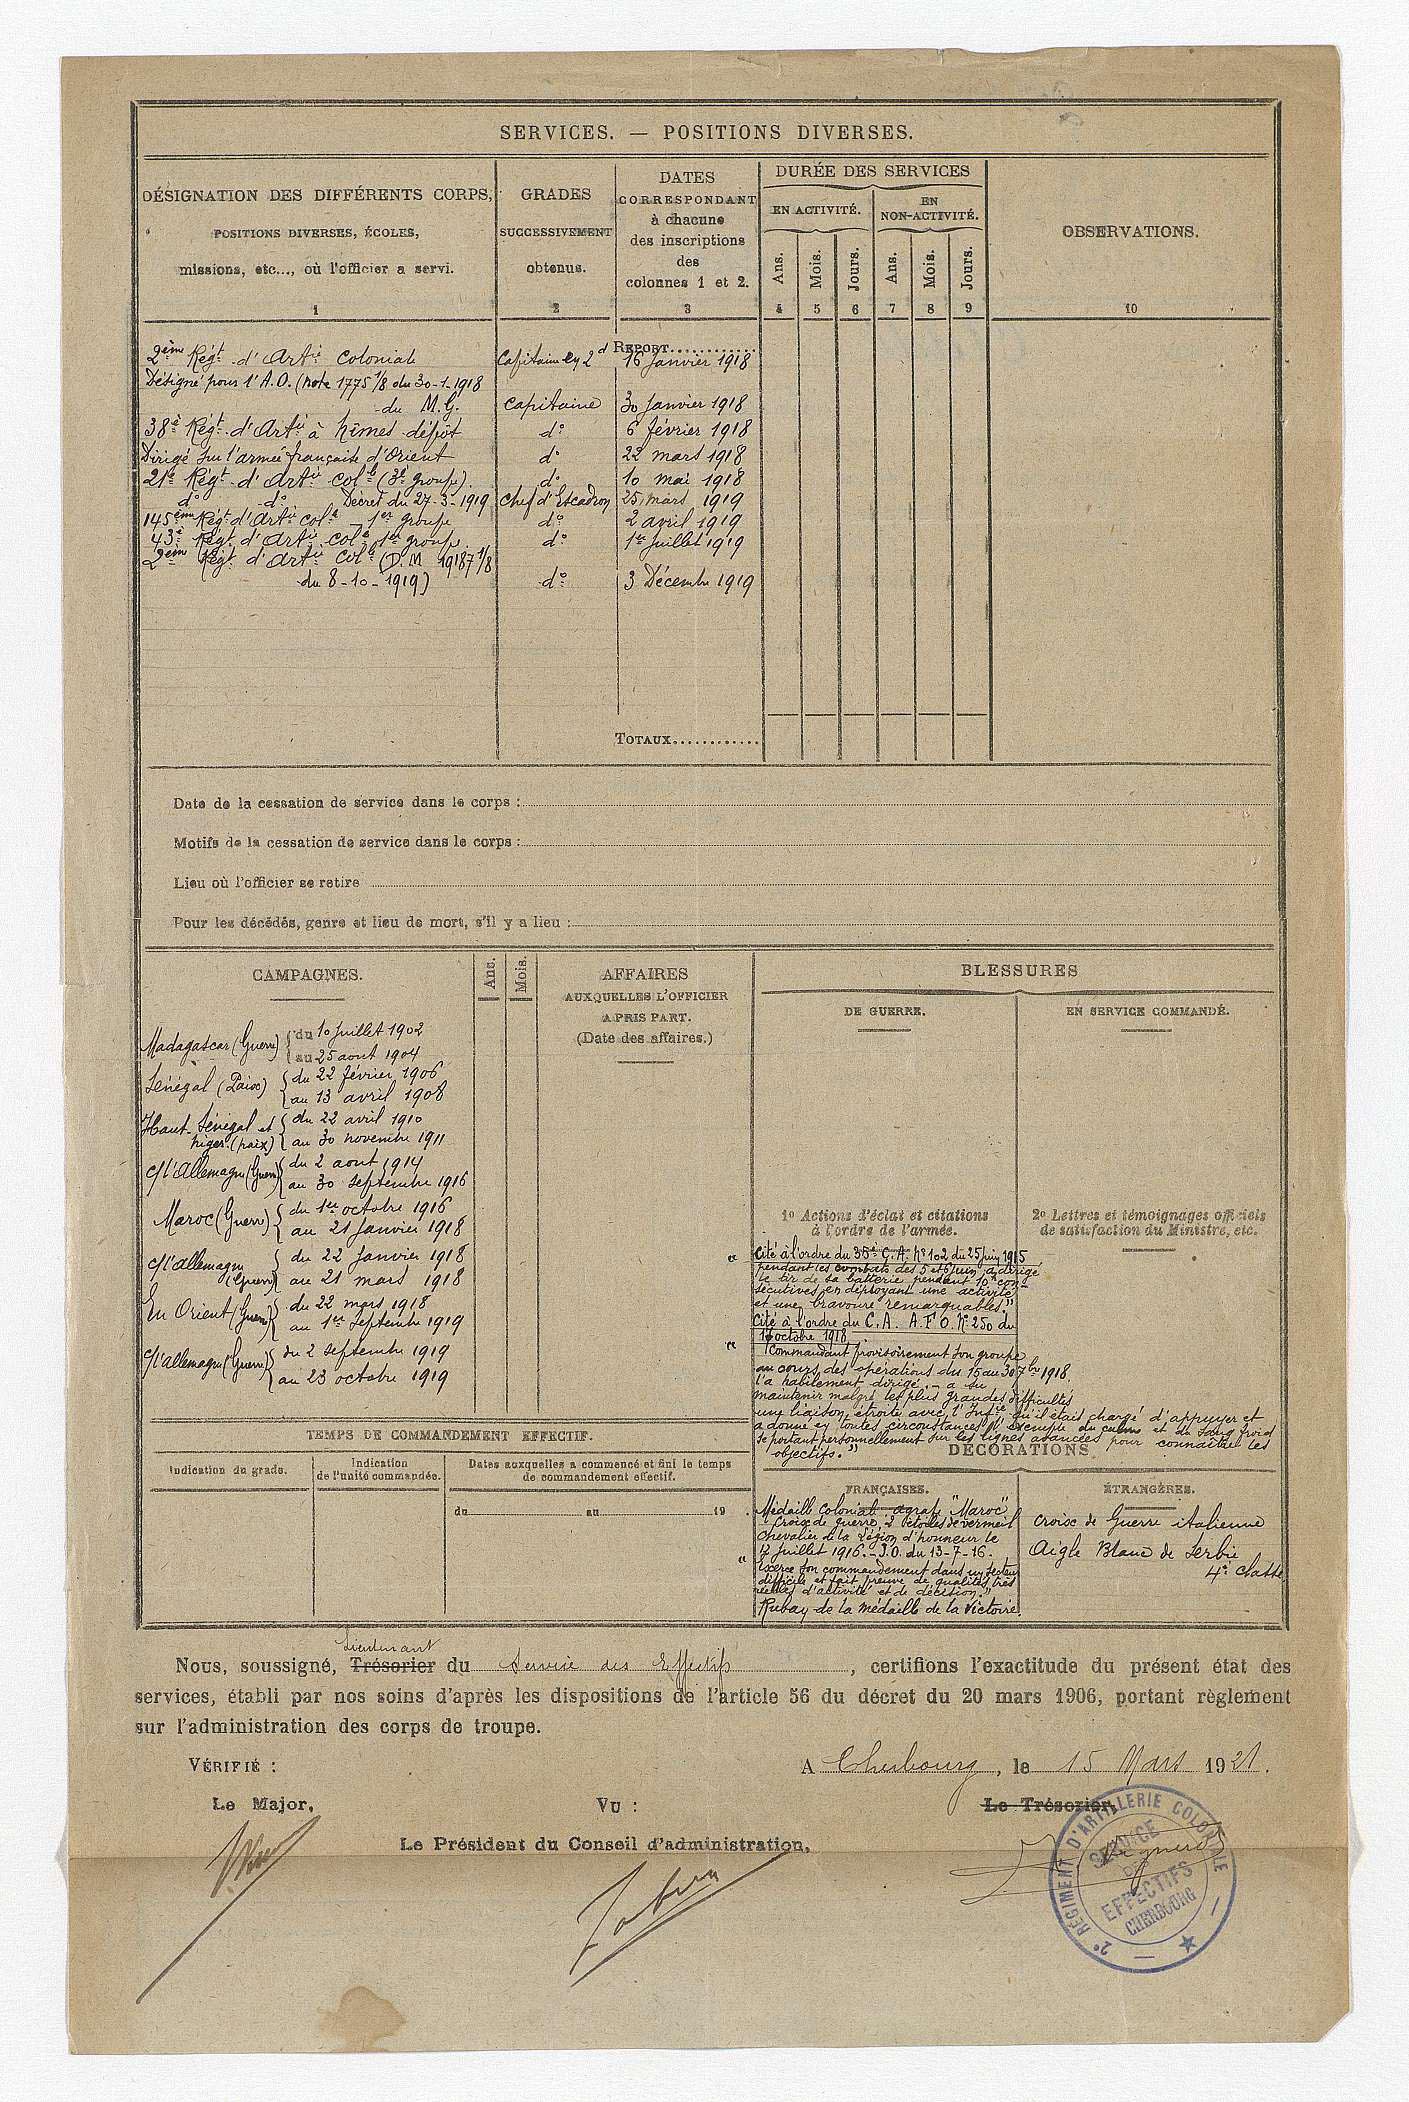 SERVICES. — POSITIONS DIVERSES.
DÉSIGNATION DES DIFFÉRENTS CORPS,
POSITIONS DIVERSES, ÉCOLES,
missions, etc..., où l'officier a servi.
1
GRADES
SUCCESSIVEMENT
obtenus.
2
DATES
CORRESPONDANT
à chacune
des inscriptions
des
colonnes 1 et 2.
3
DURÉE DES SERVICES
EN ACTIVITÉ.
EN
NON-ACTIVITÉ.
Ans.
Mois.
Jours.
Ans.
Mois.
Jours.
4 5 6 7 8 9
OBSERVATIONS.
10
REPORT............
2ème Régt d'Artie Coloniale Capitaine en 2d 16 Janvier 1918
Désigné pour l'A.O. (note 1775 1/8 du 30-1-1918
du M.G. Capitaine 30 Janvier 1918
38e Régt d'Artie à Nîmes dépôt do 6 février 1918
Dirigé sur l'armée française d'Orient do 22 mars 1918
21e Régt d'Artie Colle (3e groupe). do 10 mai 1918
do do Décret du 27-3-1919 Chef d'Escadron 25 mars 1919
145ème Régt d'Artie Colle 1er groupe do 2 avril 1919
43e Régt d'Artie Colle 1er groupe do 1er Juillet 1919
2ème Régt d'Artie Colle (D.M 19187 1/8
du 8-10-1919) do 3 Décembre 1919
TOTAUX............
Date de la cessation de service dans le corps :
Motifs de la cessation de service dans le corps :
Lieu où l'officier se retire
Pour les décédés, genre et lieu de mort, s'il y a lieu :
CAMPAGNES.
Ans.
Mois.
Madagascar (Guerre) du 10 Juillet 1902
au 25 aout 1904
Sénégal (Paix) du 22 février 1906
au 13 avril 1908
Haut-Sénégal et du 22 avril 1910
Niger (paix) au 30 novembre 1911
C/l'Allemagne (Guerre) du 2 aout 1914
au 30 septembre 1916
Maroc (Guerre) du 1er octobre 1916
au 21 Janvier 1918
C/l'allemagne du 22 Janvier 1918
(Guerre) au 21 mars 1918
En Orient (Guerre) du 22 mars 1918
au 1er Septembre 1919
C/l'allemagne (Guerre) du 2 septembre 1919
au 23 octobre 1919
AFFAIRES
AUXQUELLES L'OFFICIER
A PRIS PART.
(Date des affaires.)
BLESSURES
DE GUERRE.
EN SERVICE COMMANDÉ.
1o Actions d'éclat et citations
à l'ordre de l'armée.
2o Lettres et témoignages officiels
de satisfaction du Ministre, etc.
Cité à l'ordre du 35e C.A. No 102 du 25 juin 1915
" pendant les combats des 5 et 6 juin, a dirigé
le tir de sa batterie pendant 10h con-
sécutives en déployant une activité
et une bravoure remarquables."
Cité à l'ordre du C.A. A.F.O. No 250 du
octobre 1918
" Commandant provisoirement son groupe
au cours des opérations du 15 au 30 7bre 1918,
l'a habilement dirigé. - a su
maintenir malgré les plus grandes difficultés
une liaison étroite avec l'Infie qu'il était chargé d'appuyer et
a donné en toutes circonstances l'exemple du calme et du sang froid
se portant personnellement sur les lignes avancées pour connaître les
objectifs."
TEMPS DE COMMANDEMENT EFFECTIF.
Indication du grade.
Indication
de l'unité commandée.
Dates auxquelles a commencé et fini le temps
de commandement effectif.
du au 19 .
DÉCORATIONS
FRANÇAISES.
Médaille Coloniale agrafe "Maroc"
Croix de guerre 2 étoiles de vermeil
Chevalier de la Légion d'honneur le
Juillet 1916. - J.O. du 13-7-16.
" Exerce son commandement dans un secteur
difficile et fait preuve de qualités très
réelles d'activité et de décision."
Ruban de la médaille de la Victoire.
ÉTRANGÈRES.
Croix de Guerre italienne
Aigle Blanc de Serbie
4e classe
Lieutenant
Nous, soussigné, Trésorier du Service des Effectifs, certifions l'exactitude du présent état des
services, établi par nos soins d'après les dispositions de l'article 56 du décret du 20 mars 1906, portant règlement
sur l'administration des corps de troupe.
VÉRIFIÉ :
A Cherbourg, le 15 Mars 1921.
Le Major,
VU :
Le Trésorier,
Le Président du Conseil d'administration,
2e RÉGIMENT D'ARTILLERIE COLONIALE
SERVICE
DES
EFFECTIFS
CHERBOURG